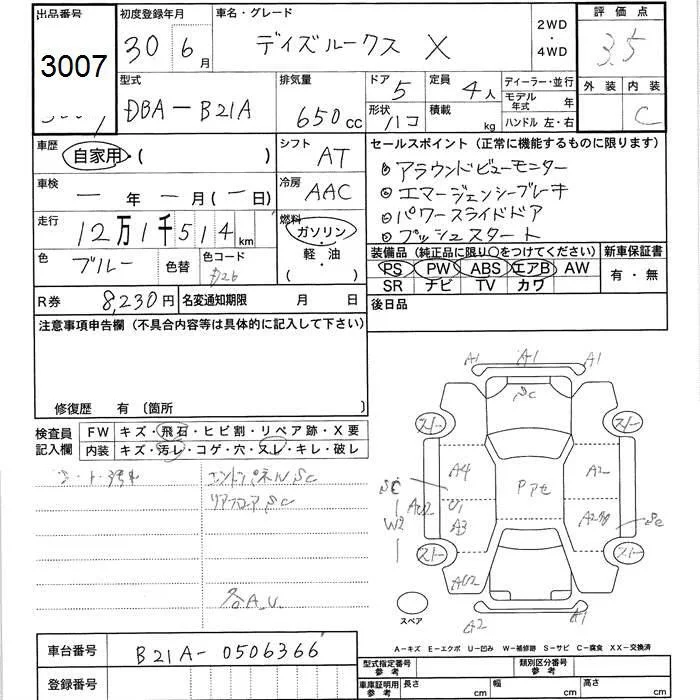 出品番号 初度登録年月 車名・グレード 2WD・4WD 評価点
3007 30年6月 デイズルークス X 3.5
外装 内装 C
型式 排気量 ドア 定員 ディーラー・並行
DBA-B21A 650cc 5 4人 モデル年式 年
形状 ハコ 積載 kg ハンドル 左・右
車歴 自家用・( ) シフト AT
セールスポイント(正常に機能するものに限ります)
アラウンドビューモニター
エマージェンシーブレーキ
パワースライドドア
プッシュスタート
車検 ー年ー月(ー日) 冷房 AAC
走行 12万1千514km 燃料 ガソリン・軽油( )
色 ブルー 色替 色コード
装備品(純正品に限り○をつけてください) 新車保証書
PS PW ABS エアB AW 有・無
SR ナビ TV カワ
R券 8,230円 名変通知期限 月 日
後日品
注意事項申告欄(不具合内容等は具体的に記入して下さい)
修復歴 有〔箇所 〕
検査員記入欄 FW キズ・飛石・ヒビ割・リペア跡・X要
内装 キズ・汚レ・コゲ・穴・スレ・キレ・破レ
エントランスパネルSC
リアフロアSC
各A.U.
A1 A1 A1
SC
スト スト
A4 Pアセ A2
SC U1
W2 A3 SC
スト スト
AU2
スペア
A2 A1
A-キズ E-エクボ U-凹み W-補修跡 S-サビ C-腐食 XX-交換済
車台番号 B21A-0506366
登録番号
型式指定番号 参考 類別区分番号 参考
車庫証明用 参考 長さ cm 幅 cm 高さ cm